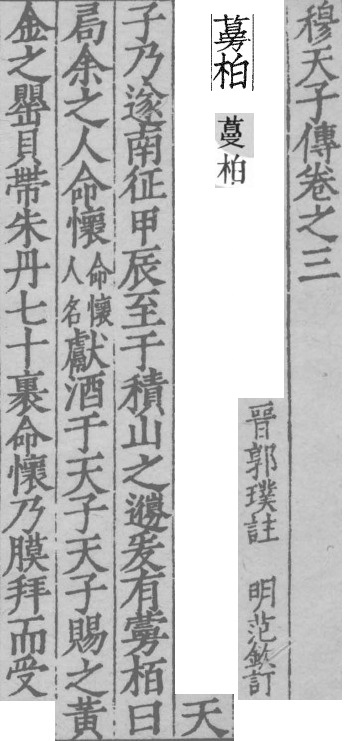 穆天子傳卷之三
晉郭璞註 明范欽訂
柏
蔓柏
天
子乃遂南征甲辰至于積山之邊爰有栢曰
余之人命懷命懷人名獻酒于天子天子賜之黃
金之罌貝帶朱丹七十裹命懷乃膜拜而受